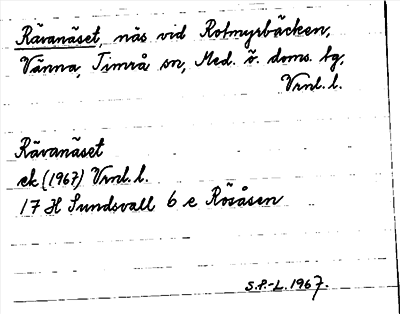 Rävanäset, näs vid Rotmyrbäcken,
Vänna, Timrå sn, Med. ö. doms. tg,
Vrnl. l.
Rävanäset
ek (1967) Vrnl. l.
17 H Sundsvall 6 e Rösåsen
S.P.-L. 1967.